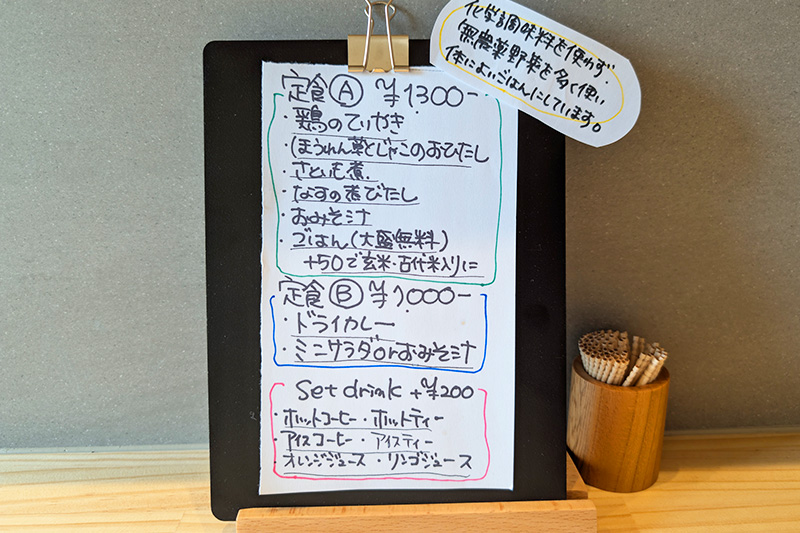 化学調味料を使わず・
無農薬野菜を多く使い
体によいごはんにしています。
定食Ⓐ ¥1300-
・鶏のてりやき
・ほうれん草とじゃこのおひたし
・さといも煮
・なすの煮びたし
・おみそ汁
・ごはん(大盛無料)
+50で玄米・古代米入りに
定食Ⓑ ¥1000-
・ドライカレー
・ミニサラダorおみそ汁
Set drink +¥200
・ホットコーヒー・ホットティー
・アイスコーヒー・アイスティー
・オレンジジュース・リンゴジュース